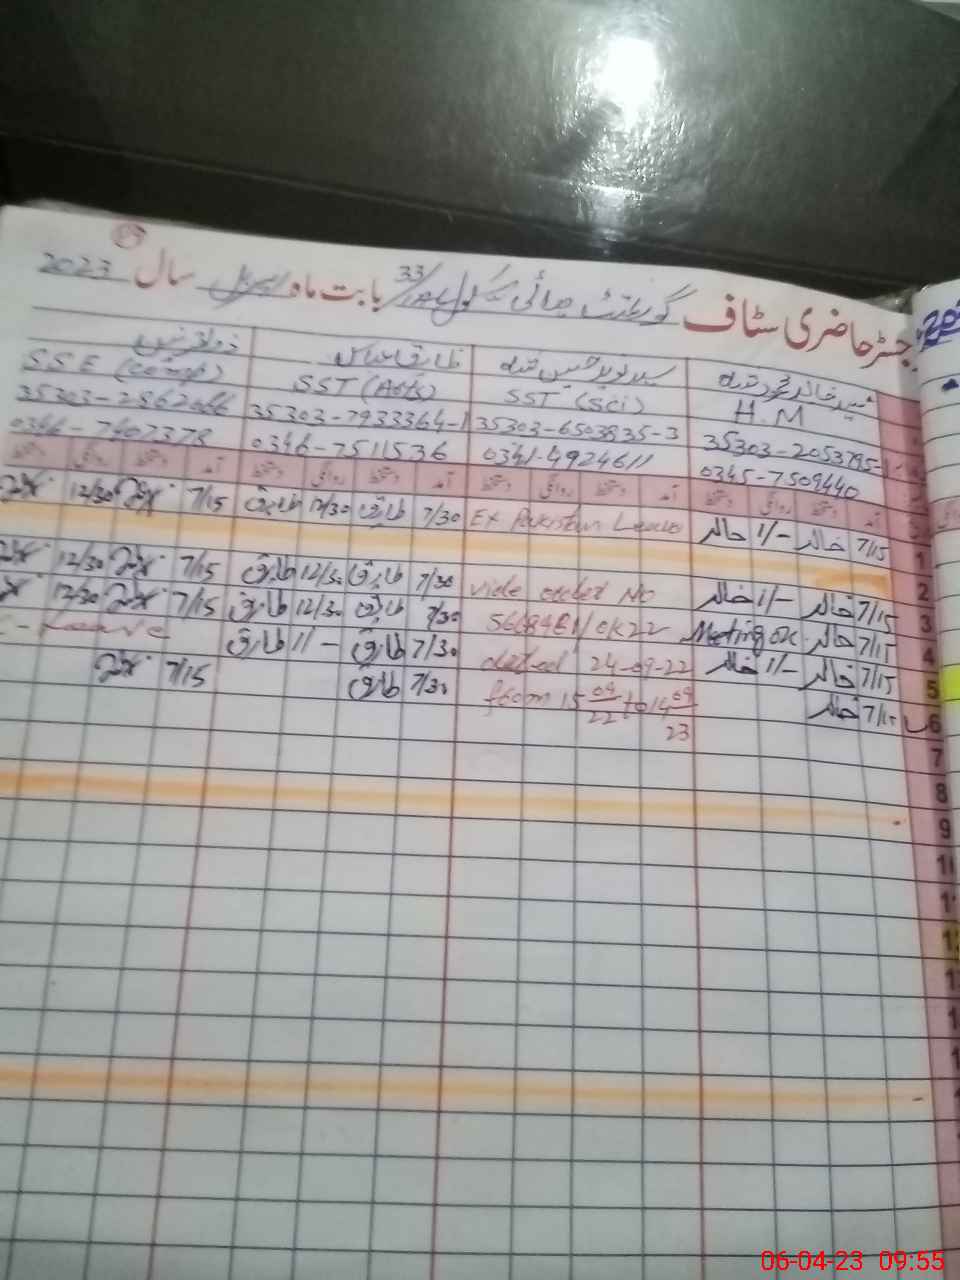 رجسٹر حاضری سٹاف گورنمنٹ ہائی سکول 33/ بابت ماہ اپریل سال 2023
سید خالد محمود شاہ
H.M
35303-2053795-1
0345-7509440
سید نوید حسین شاہ
SST (Sci)
35303-6503835-3
0341-4924611
طارق عباس
SST (Arts)
35303-7933364-1
0346-7511536
SSE (Comp)
0346-7407378
آمد دستخط روانگی دستخط آمد دستخط روانگی دستخط آمد دستخط روانگی دستخط آمد دستخط روانگی دستخط
1 7/15 خالد 1/- خالد Ex Pakistan Leave 7/30 طارق 12/30 طارق 7/15 12/30
2
3 7/15 خالد 1/- خالد vide order No 7/30 طارق 12/30 طارق 7/15 12/30
4 7/15 خالد Meeting 7/30 طارق 12/30 طارق 7/15 12/30
5 7/15 خالد 1/- خالد dated 24-09-22 7/30 طارق 11/- طارق Leave
6 7/15 خالد from 15 09/22 to 14 09/23 7/30 طارق 7/15
7
8
9
10
06-04-23 09:55